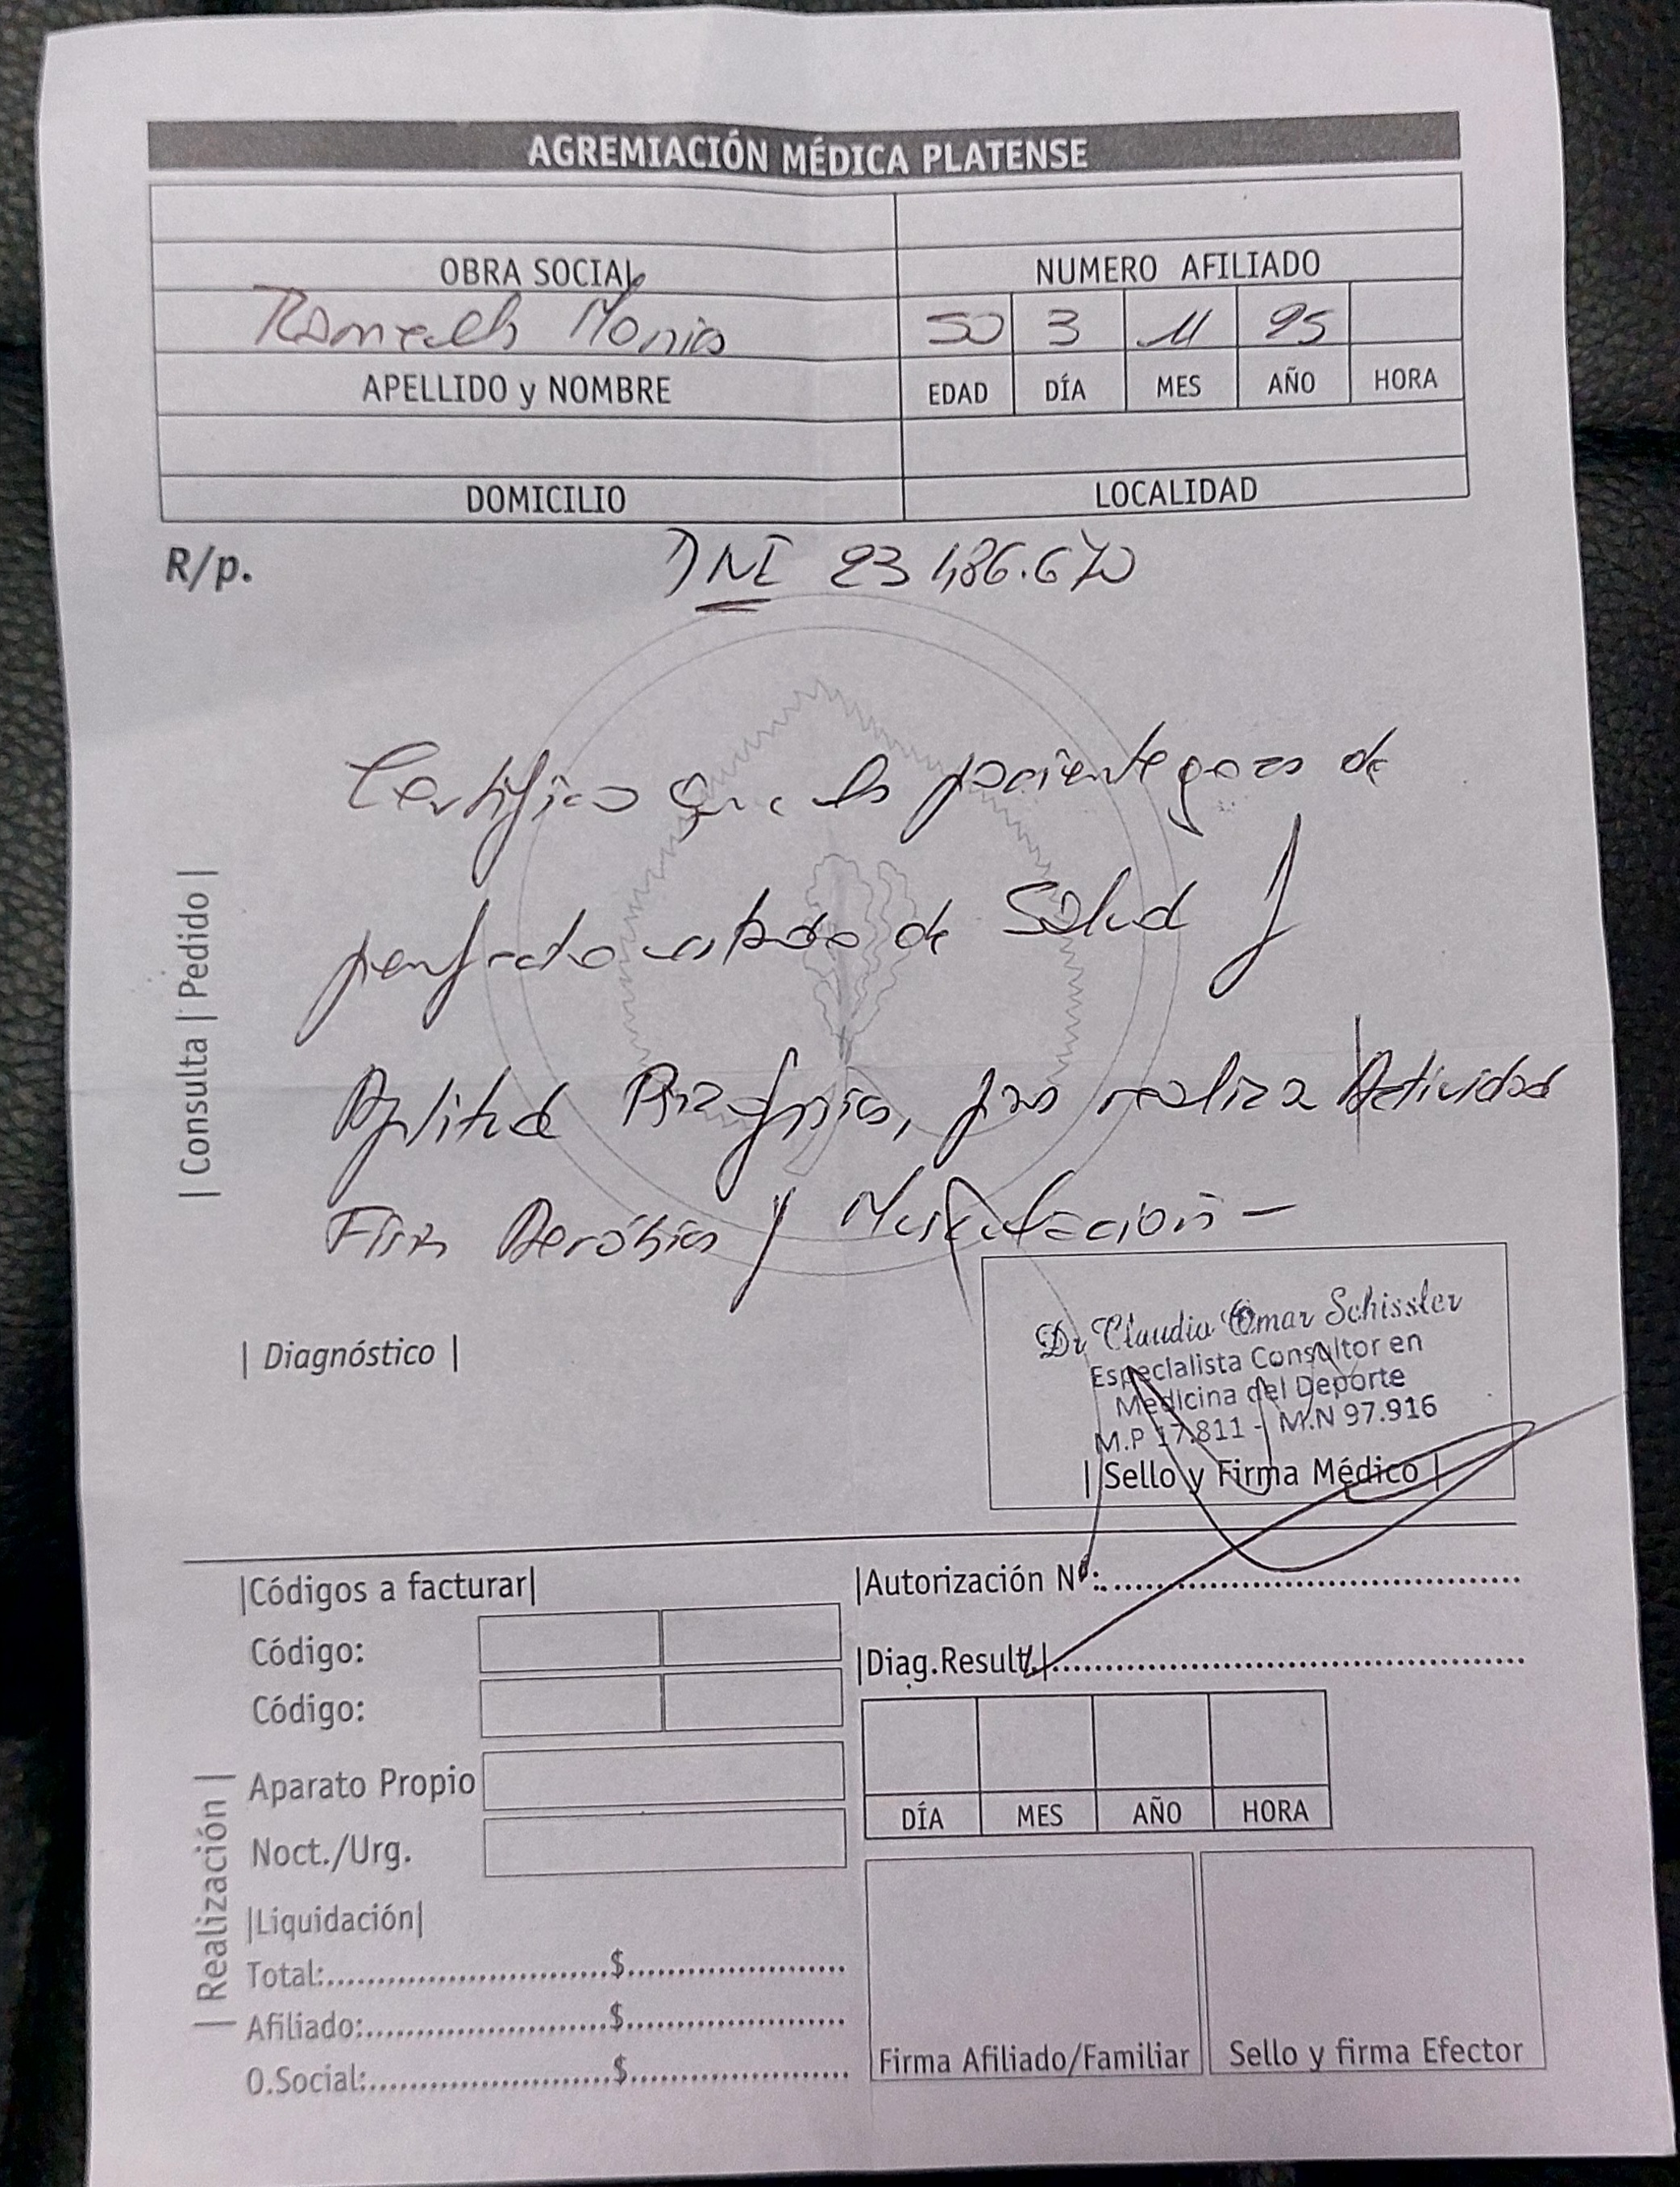 AGREMIACIÓN MÉDICA PLATENSE
OBRA SOCIAL NUMERO AFILIADO
50 3 11 25
APELLIDO y NOMBRE EDAD DÍA MES AÑO HORA
DOMICILIO LOCALIDAD
R/p. DNI 23.486.670
| Consulta | Pedido |
Certifico que la paciente goza de
perfecto estado de Salud y
Aptitud Psicofísica, para realizar Actividad
Física Aeróbica y Musculación -
| Diagnóstico |
Dr Claudio Omar Schissler
Especialista Consultor en
Medicina del Deporte
M.P 17.811 - M.N 97.916
| Sello y Firma Médico |
|Códigos a facturar| |Autorización Nº:
Código:
|Diag.Result.|
Código:
| Realización |
Aparato Propio
DÍA MES AÑO HORA
Noct./Urg.
|Liquidación|
Total: $
Afiliado: $
Firma Afiliado/Familiar Sello y firma Efector
O.Social: $